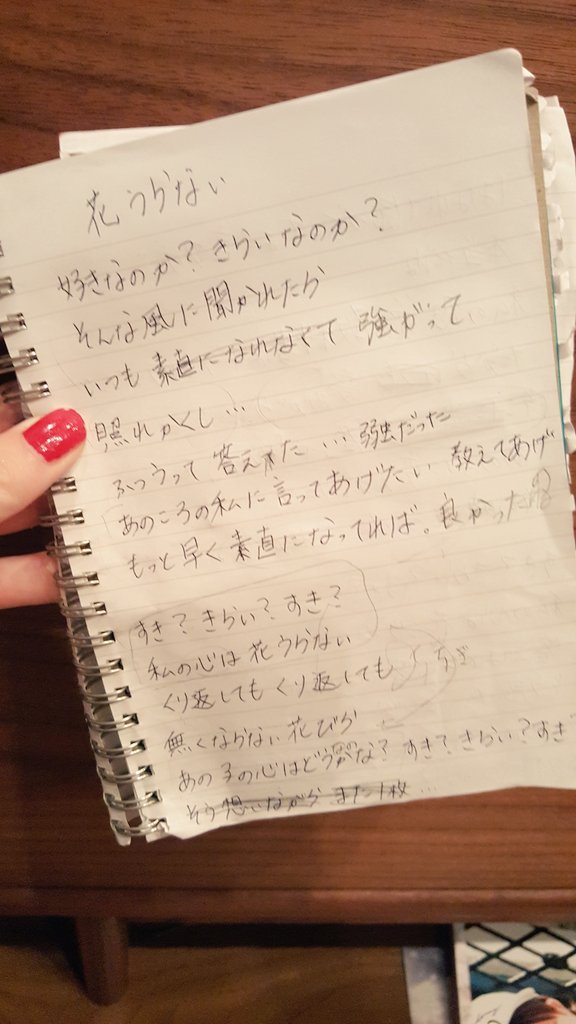 花うらない
好きなのか？きらいなのか？
そんな風に聞かれたら
いつも素直になれなくて 強がって
照れかくし…
ふつうって 答えた … 強がった
あのころの私に言ってあげたい 教えてあげ
もっと早く素直になってれば。良かった
すき？きらい？すき？
私の心は花うらない
くり返しても くり返しても
無くならない花びら
あの子の心はどうかな？ すき？きらい？すき？
そう想いながら また1枚…